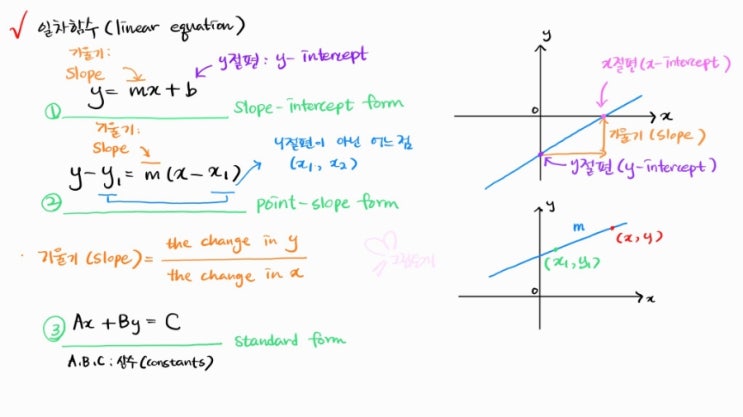 ✓ 일차함수 (linear equation)
기울기:
Slope
y절편: y-intercept
y = mx + b
① slope-intercept form
기울기:
Slope
y절편이 아닌 어느점
(x₁, x₂)
y - y₁ = m (x - x₁)
② point-slope form
기울기 (slope) = the change in y
the change in x
③ Ax + By = C
standard form
A.B.C : 상수 (constants)
y
x절편 (x-intercept)
0
x
기울기 (slope)
y절편 (y-intercept)
y
m
(x, y)
(x₁, y₁)
0
x